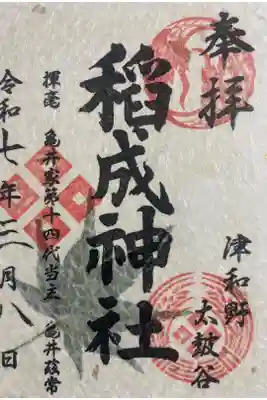 奉拝
津和野
太皷谷
稻成神社
揮毫 亀井家第十四代当主 亀井茲常
令和七年二月八日